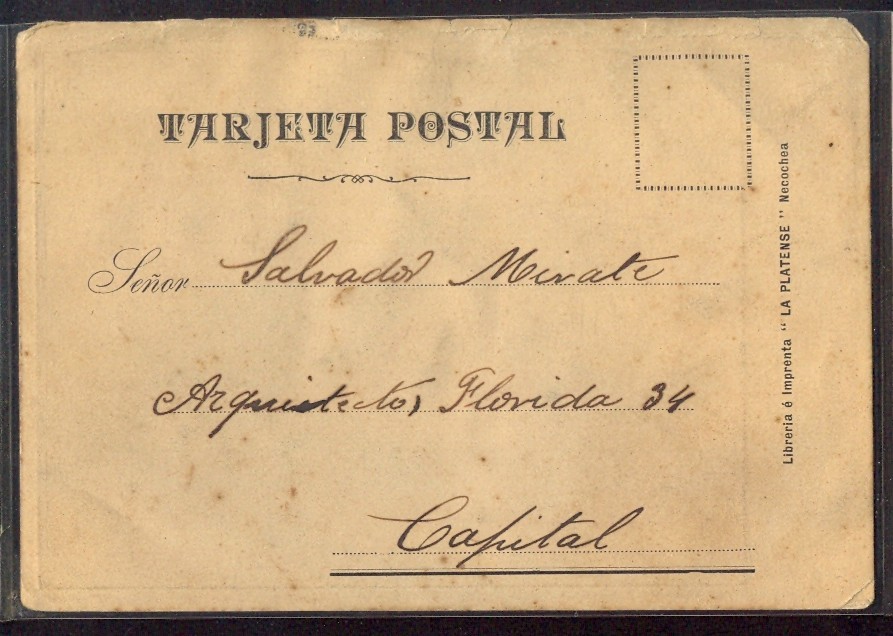 TARJETA POSTAL
Señor Salvador Mirate
Arquitecto, Florida 34
Capital
Libreria é Imprenta "LA PLATENSE" Necochea